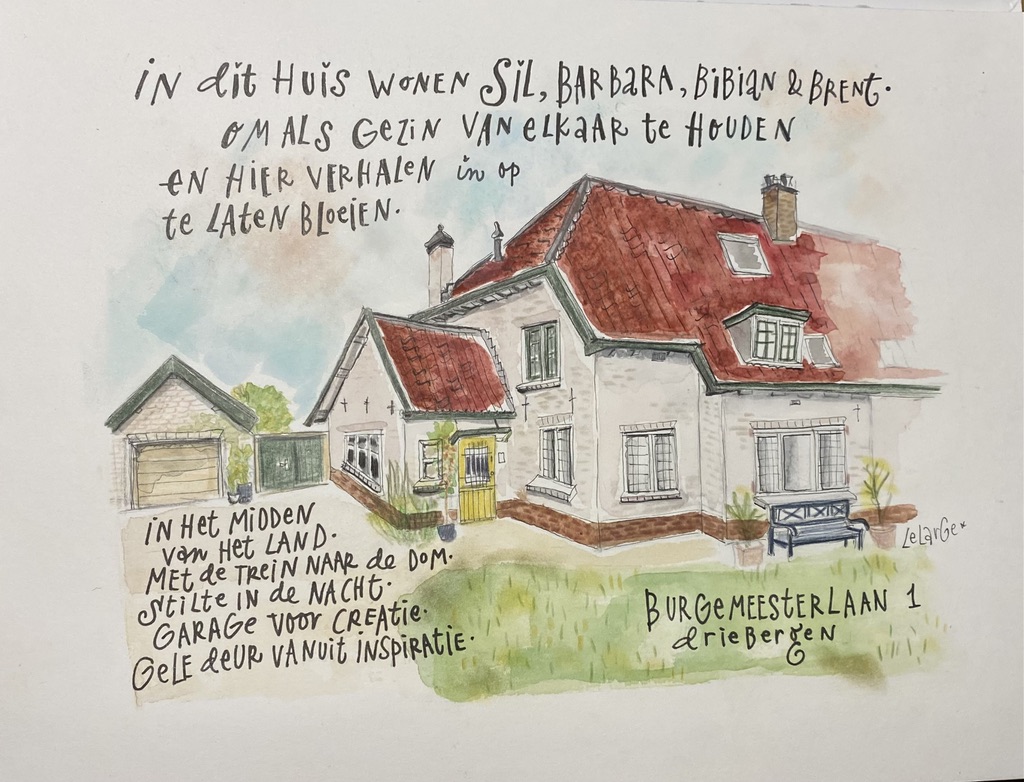 in dit Huis wonen Sil, BARBARA, BiBian & BRENT.
OM ALS GEZIN VAN ELKAAR te HOUDEN
EN HIER VERHALEN in op
te LATEN BLOEIEN.
IN HET MIDDEN
van HET LAND.
MET de TREIN NAAR de DOM.
StILTE IN de NACHT.
GARAGE VOOR CREATIE.
GELE deUR VANUIT INSPIRATIE.
BURGEMEESTERLAAN 1
drieBERGEN
LeLarGe*